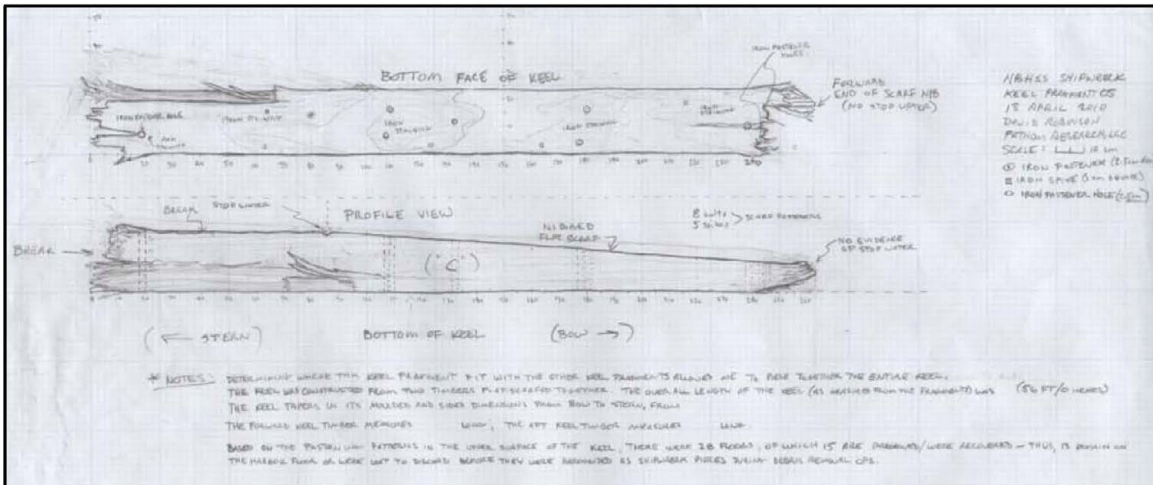 BOTTOM FACE OF KEEL
IRON FASTENER HOLES
FORWARD
END OF SCARF NIB
(NO STOP WATER)
IRON FASTENER HOLE
IRON STAINING
IRON STAINING
IRON STAINING
NBHSS SHIPWRECK
KEEL FRAGMENT 05
18 APRIL 2010
DAVID ROBINSON
FATHOM RESEARCH, LLC
SCALE: 10 cm
IRON FASTENER
IRON SPIKE
IRON FASTENER HOLE
BREAK
STOPWATER
PROFILE VIEW
NIBBED
FLAT SCARF
8 bolts
5 spikes
SCARF FASTENERS
NO EVIDENCE
OF STOP WATER
BREAK
("C")
(← STERN)
BOTTOM OF KEEL
(BOW →)
* NOTES: DETERMINING WHERE THIS KEEL FRAGMENT FIT WITH THE OTHER KEEL FRAGMENTS ALLOWED ME TO PIECE TOGETHER THE ENTIRE KEEL.
THE KEEL WAS CONSTRUCTED FROM TWO TIMBERS FLAT-SCARFED TOGETHER. THE OVERALL LENGTH OF THE KEEL (AS MEASURED FROM THE FRAGMENTS) WAS (56 FT/0 INCHES)
THE KEEL TAPERS IN ITS MOULDED AND SIDED DIMENSIONS FROM BOW TO STERN, FROM
THE FORWARD KEEL TIMBER MEASURES LONG, THE AFT KEEL TIMBER MEASURES LONG.
BASED ON THE FASTENING PATTERNS IN THE UPPER SURFACE OF THE KEEL, THERE WERE 28 FLOORS, OF WHICH 15 ARE /WERE RECOVERED - THUS, 13 REMAIN ON
THE HARBOR FLOOR OR WERE LOST TO DISCARD BEFORE THEY WERE RECOGNIZED AS SHIPWRECK PIECES DURING DEBRIS REMOVAL OPS.